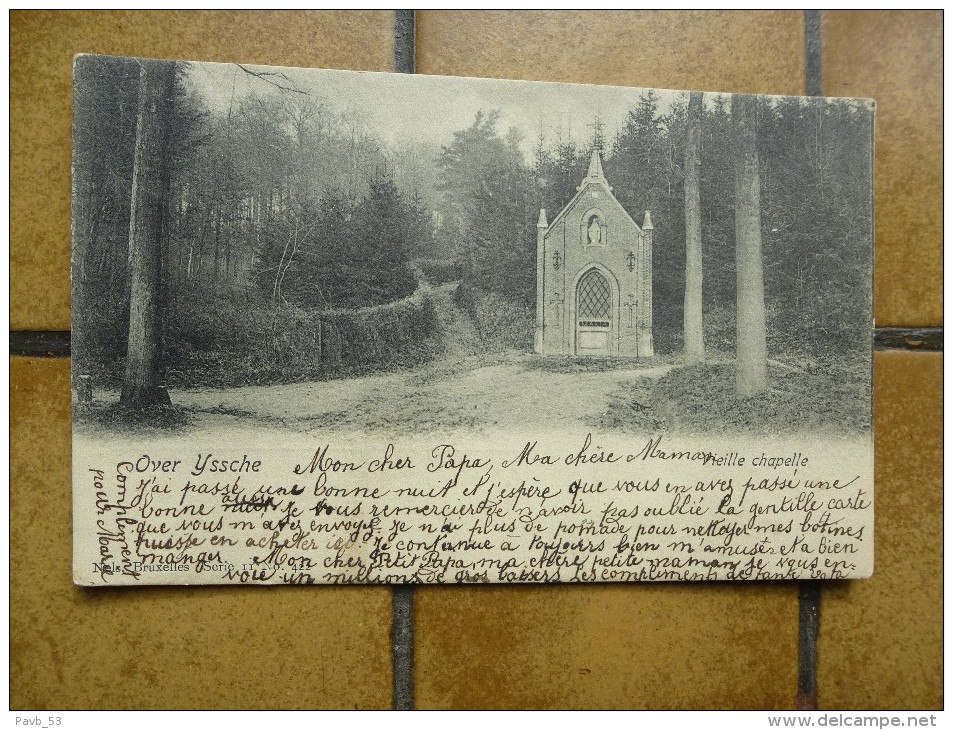 Over Yssche
Mon cher Papa, Ma chère Maman
Vieille chapelle
J'ai passé une bonne nuit et j'espère que vous en avez passé une
bonne aussi Je vous remercier de n'avoir pas oublié la gentille carte
que vous m'avez envoyé. Je n'ai plus de pomade pour nettoyer mes botines
en acheter ici. Je continue à toujours bien m'amusé et a bien
manger Mon cher Petit Papa, ma chère petite maman je vous en-
voie un millions de gros baisers les compliments de
Compliments
pour Marie
Nels, Bruxelles Serie 11 No.
Pavb_53
www.delcampe.net